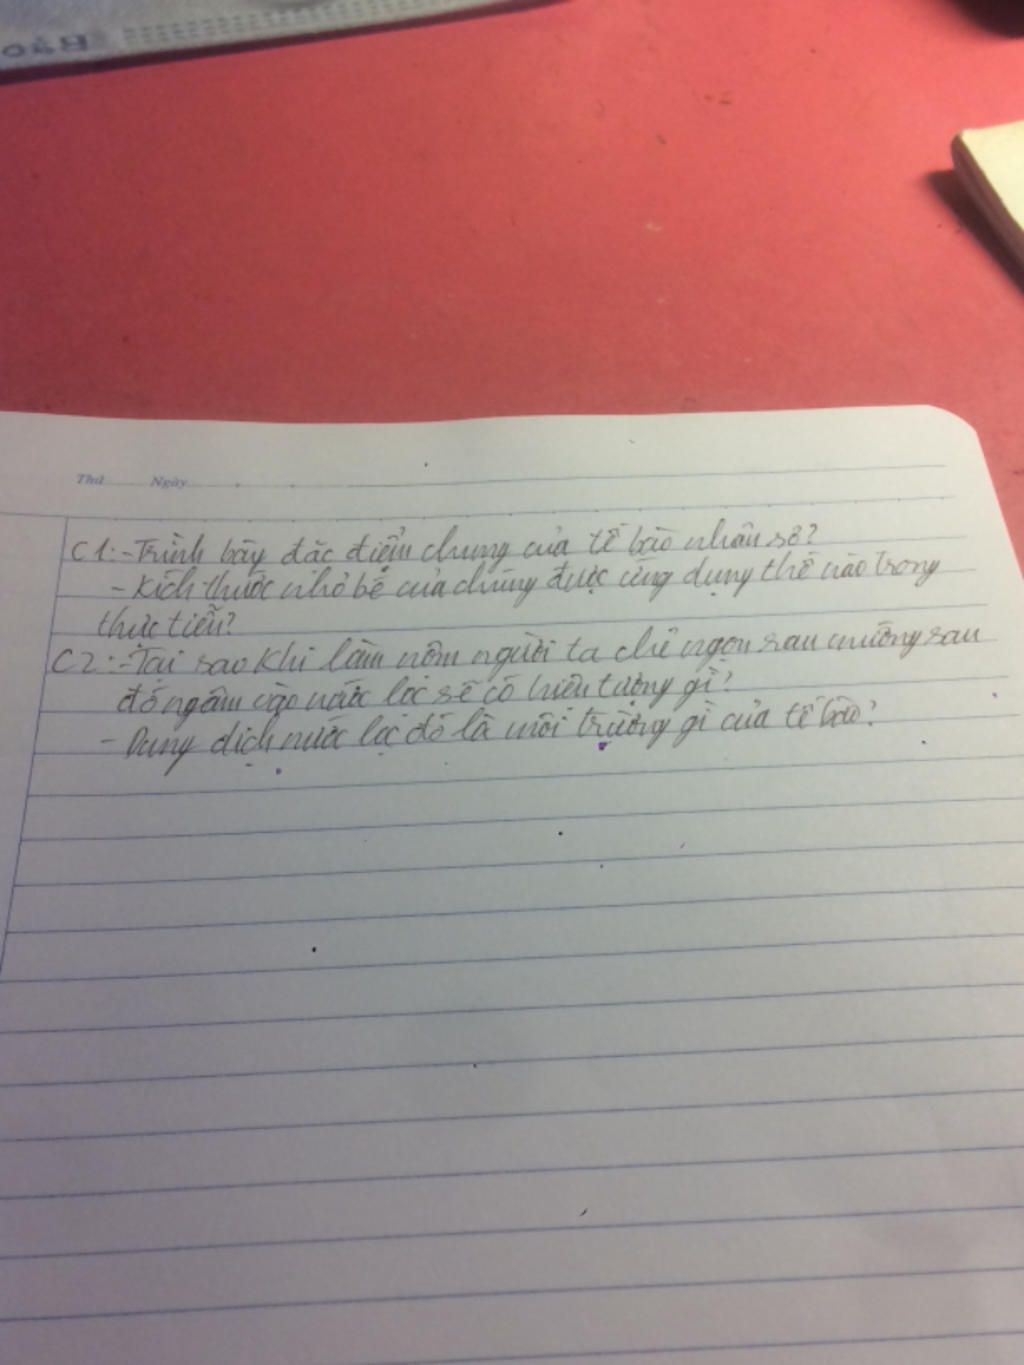 Bảo
Thứ Ngày
C1: - Trình bày đặc điểm chung của tế bào nhân sơ?
- Kích thước nhỏ bé của chúng được ứng dụng thế nào trong
thực tiễn?
C2: - Tại sao khi làm nộm người ta chẻ ngọn rau muống sau
đó ngâm vào nước lọc sẽ có hiện tượng gì?
- Dung dịch nước lọc đó là môi trường gì của tế bào?